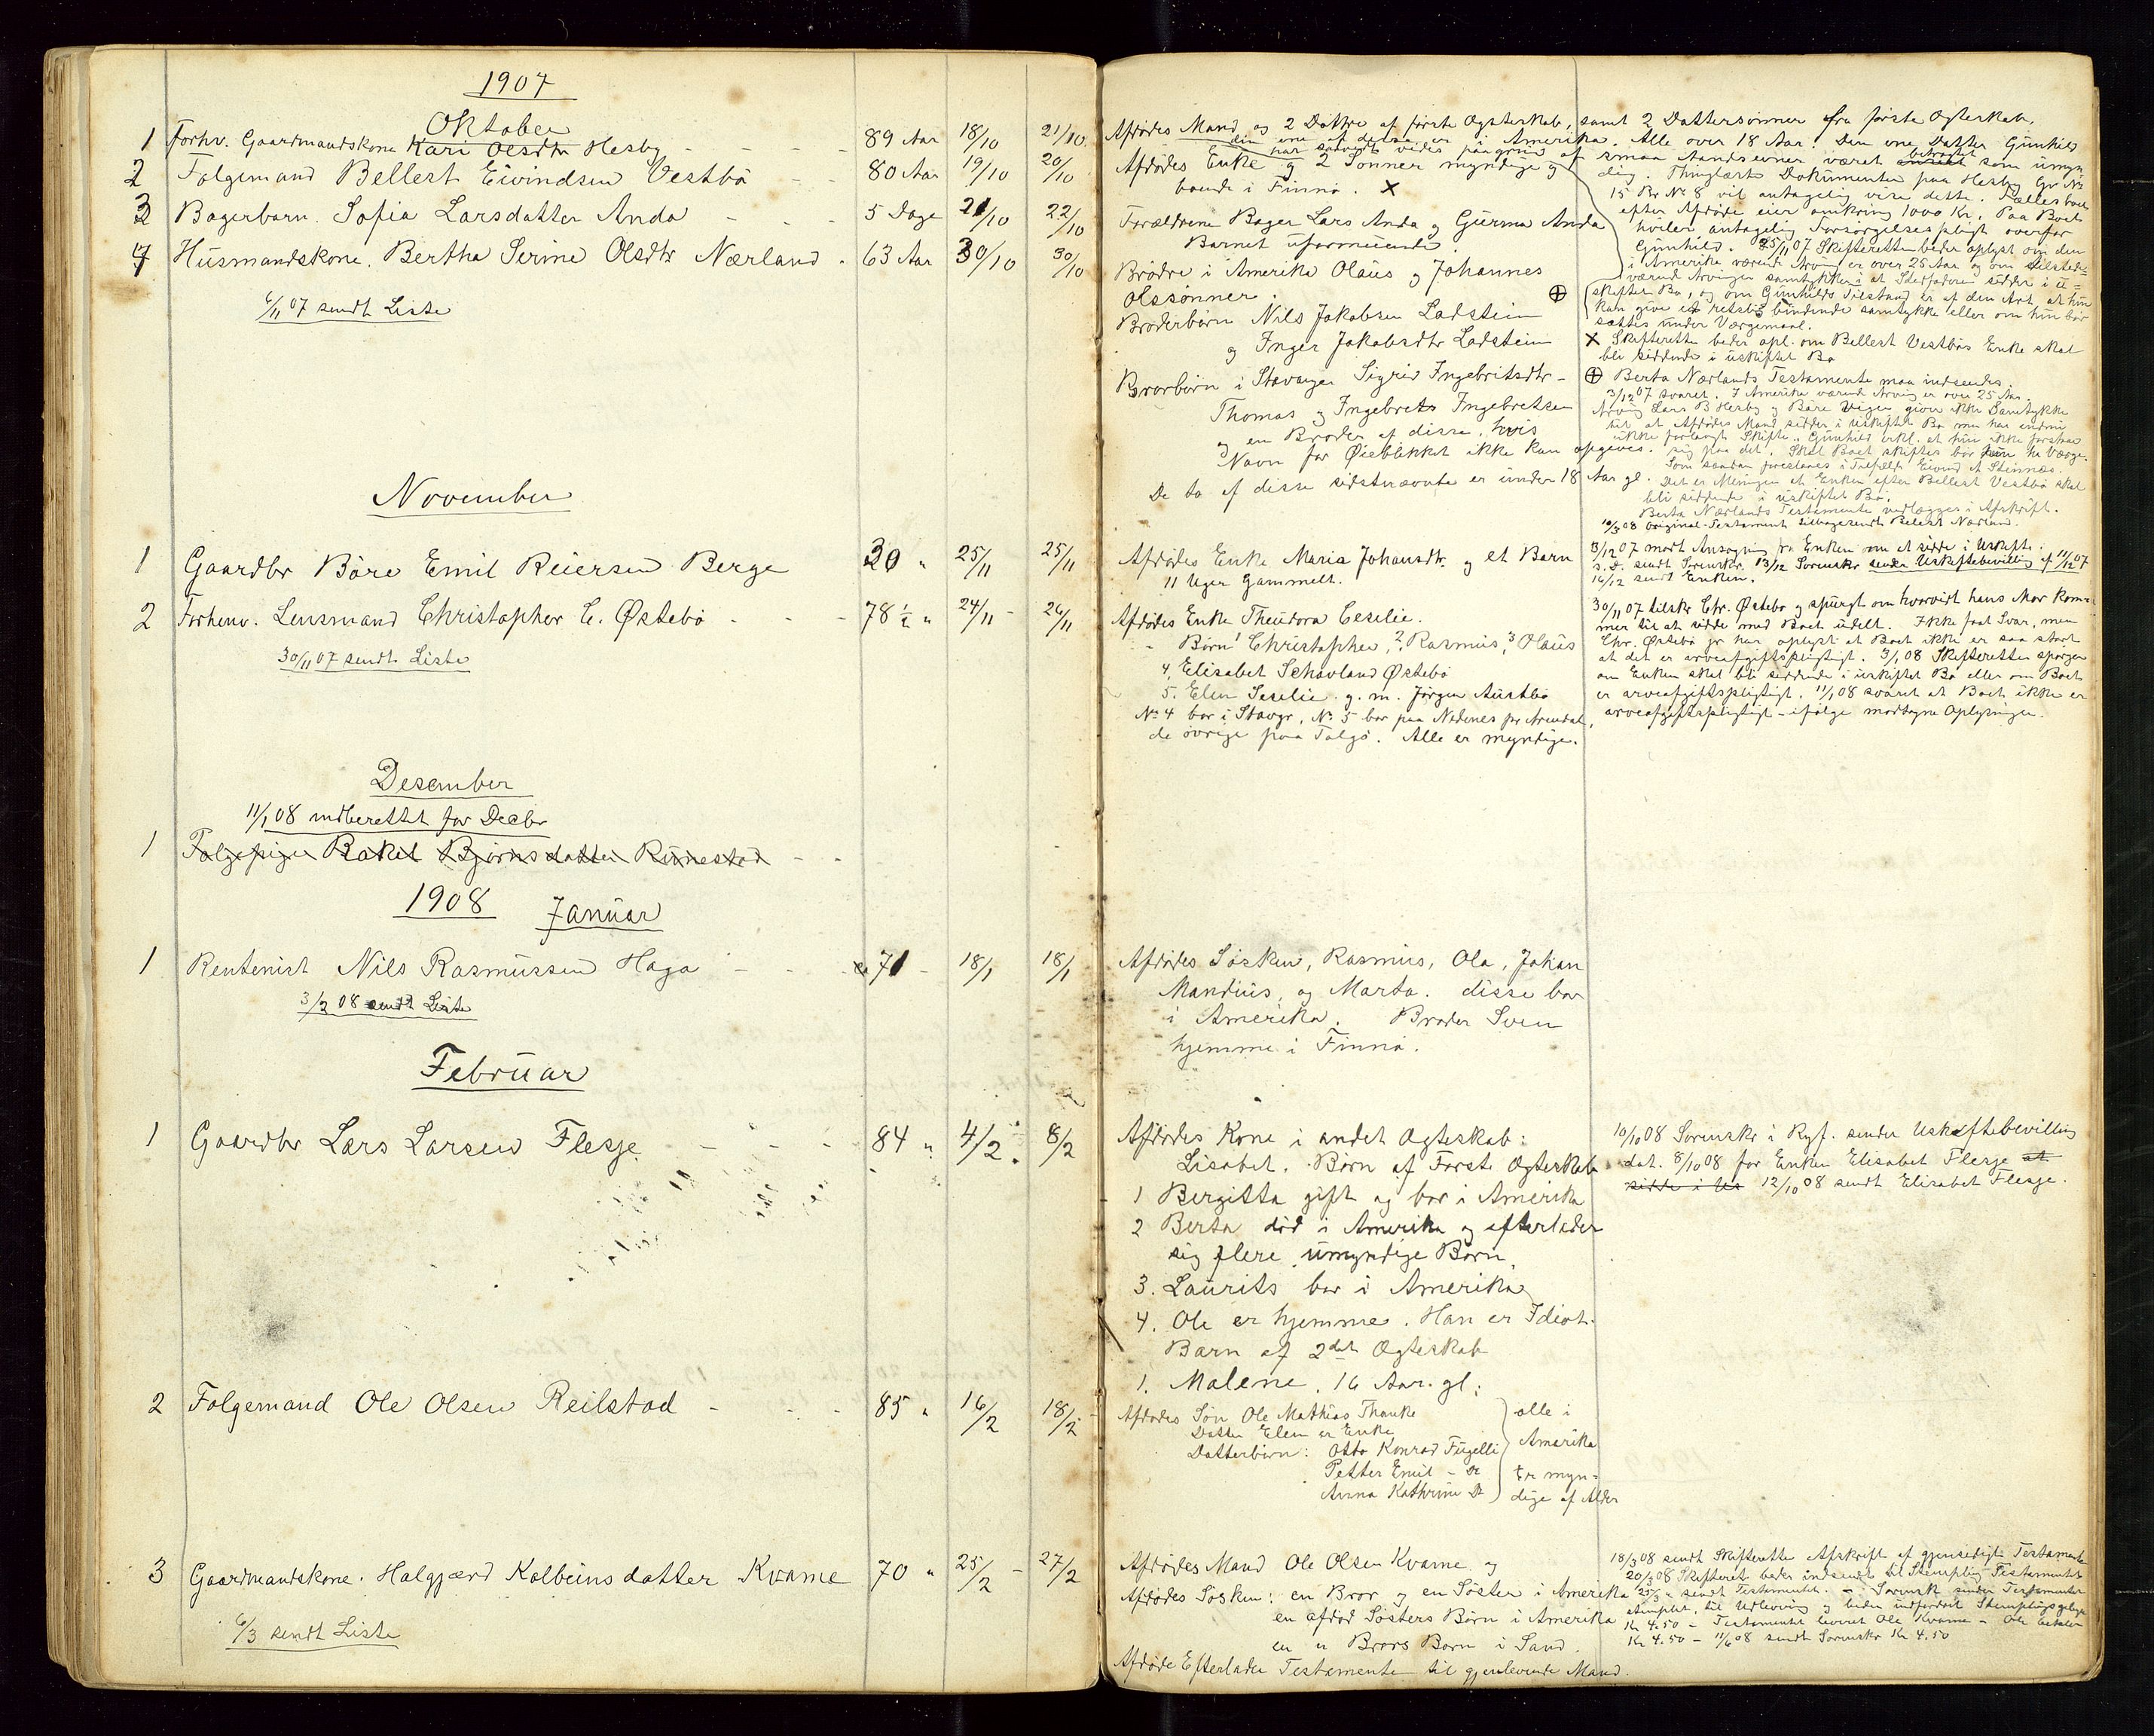 1907
Oktober
1 Forhv. Gaardmandskone Kari Olsdtr Hesby - - - 89 Aar 18/10 21/10
2 Følgemand Bellest Eivindsen Vestbø - - 80 Aar 19/10 20/10
3 Bagerbarn. Sofia Larsdatter Anda - - - 5 Dage 21/10 22/10
4 Husmandskone. Bertha Serine Olsdtr Nærland - 63 Aar 30/10 30/10
6/11 07 sendt Liste
November
1 Gaardbr Børe Emil Reiersen Berge 30 " 25/11 25/11
2 Forhenv. Lensmand Christopher C. Østebø - - - 78 1/2 " 24/11 - 26/11
30/11 07 sendt Liste
Desember
11/1 08 indberettet for Decbr
1 Følgepige Rakel Bjørnsdatter Rimestad - -
1908 Januar
1 Rentenist Nils Rasmussen Haga - - - 71 - 18/1 18/1
3/2 08 sendt Liste
Februar
1 Gaardbr Lars Larsen Flesje - - - 84 " 4/2 8/2
2 Følgemand Ole Olsen Reilstad - - - 85 " 16/2 18/2
3 Gaardmandskone. Halgjærd Kolbeinsdatter Kvame 70 " 25/2 - 27/2
6/3 sendt Liste
Afdødes Mand og 2 Døttre af første Ægteskab, samt 2 Dattersønner fra første Ægteskab.
den ene af disse er i Amerika. Alle over 18 Aar. Den ene Datter Gunhild
har saavidt vides paagrund af smaa Aandsevner været betragtet som umyn-
dig. Thinglæste Dokumenter paa Hesby Gr No
15 Br No 8 vil antagelig vise dette. Fællesboet
efter Afdøde eier omkring 1000 Kr. Paa Boet
hviler antagelig Forsørgelsespligt overfor
Gunhild. 25/11 07 Skifteretten beder oplyst om den
i Amerika værende Arving er over 25 Aar og om tilstede-
værende Arvinger samtykker i at Stedfaderen sidder i u-
skiftet Bo, og om Gunhilds Tilstand er af den Art, at hun
kan give et retslig bindende samtykke eller om hun bør
sættes under Værgemaal.
Afdødes Enke og 2 Sønner myndige og
boende i Finnø. X
Forældrene Bager Lars Anda og Gurina Anda
Barnet uformuende.
Brødre i Amerika Olaus og Johannes
Olssønner. ⊕
Broderbørn Nils Jakobsen Ladstein
og Inger Jakobsdtr Ladstein
Brorbørn i Stavanger Sigrid Ingebritsdtr -
Thomas og Ingebrets Ingebretsen
og en Broder af disse, hvis
Navn for Øieblikket ikke kan opgives.
De to af disse sidstnævnte er under 18 Aar gl.
X Skifteretten beder opl. om Bellest Vestbøs Enke skal
bli siddende i uskiftet Bo
⊕ Berta Nærlands Testamente maa indsendes.
3/12 07 svaret. I Amerika værende Arving er over 25 Aar.
Arving Lars B Hesby og Børe Vignes giver ikke Samtykke
til at Afdødes Mand sidder i uskiftet Bo men har endnu
ikke forlangt Skifte. Gunhild erkl. at hun ikke forstaar
sig paa det. Skal Boet skiftes bør hun ha Værge.
Som saadan foreslaaes i Tilfælde Eivind A Steinnes.
Det er Meningen at Enken efter Bellest Vestbø skal
bli siddende i uskiftet Bo.
Berta Nærlands Testamente vedlægges i Afskrift.
10/3 08 Original-Testament tilbagesendt Bellest Nærland.
Afdødes Enke Maria Johansdtr. og et Barn
11 Uger Gammelt.
3/12 07 modt Ansøgning fra Enken om at sidde i Uskifte.
s. D. sendt Sorenskr. 13/12 Sorenskr sender Uskiftebevilling af 11/12 07
16/12 sendt Enken.
Afdødes Enke Theodora Ceselie.
- Børn 1 Christopher, 2. Rasmus, 3 Olaus
4, Elisabet Schavland Østebø
5. Elen Seselie. g. m. Jørgen Austbø
No 4 bor i Stavgr, No 5 bor paa Nedenes pr Arendal,
de øvrige paa Talgø. Alle er myndige.
30/11 07 tilskr Chr. Østebø og spurgt om hvorvidt hans Mor kom-
mer til at sidde med Boet udelt. Ikke faat Svar, men
Chr. Østebø jr har oplyst at Boet ikke er saa stort
at det er arveafgiftspligtigt. 3/1 08 Skifteretten spørger
om Enken skal bli siddende i uskiftet Bo eller om Boet
er arveafgiftspligtigt. 11/1 08 svaret at Boet ikke er
arveafgiftspligtigt - ifølge modtagne Oplysninger.
Afdødes Søsken, Rasmus, Ola, Johan
Mandius, og Marta. disse bor
i Amerika. Broder Sven
hjemme i Finnø.
Afdødes Kone i andet Ægteskab:
Lisabet. Børn af Første Ægteskab
1 Bergitta gift og bor i Amerika
2 Berta død i Amerika og efterlader
sig flere umyndige Børn.
3. Laurits bor i Amerika
4. Ole er hjemme. Han er Idiot.
Barn af 2det Ægteskab
1. Malene. 16 Aar. gl:
10/10 08 Sorenskr i Ryf. sender Uskiftebevilling
dat. 8/10 08 for Enken Elisabet Flesje at
sidde i Us 12/10 08 sendt Elisabet Flesje.
Afdødes Søn Ole Mathias Thanke alle i
Datter Elen er Enke
Datterbørn: Otto Konrad Fugelli Amerika
Petter Emil - Do Er myn-
Anna Kathrine Do dige af Alder
Afdødes Mand Ole Olsen Kvame og
Afdødes Søsken: en Bror og en Søster i Amerika
en afdød Søsters Børn i Amerika
en Brors Børn i Sand.
Afdøde Efterlader Testamente til gjenlevende Mand.
18/3 08 sendt Skifteretten Afskrift af gjensidigt Testamente
20/3 08 Skifteret beder indsendt til Stempling Testamentet
25/3 " sendt Testamentet. - Sorensk sender Testamentet
stemplet, til Udlevering og beder indfordret Stemplingsgebyr
Kr 4.50 - Testamentet leveret Ole Kvame - Ole betaler
Kr 4.50 - 11/6 08 sendt Sorenskr Kr 4.50